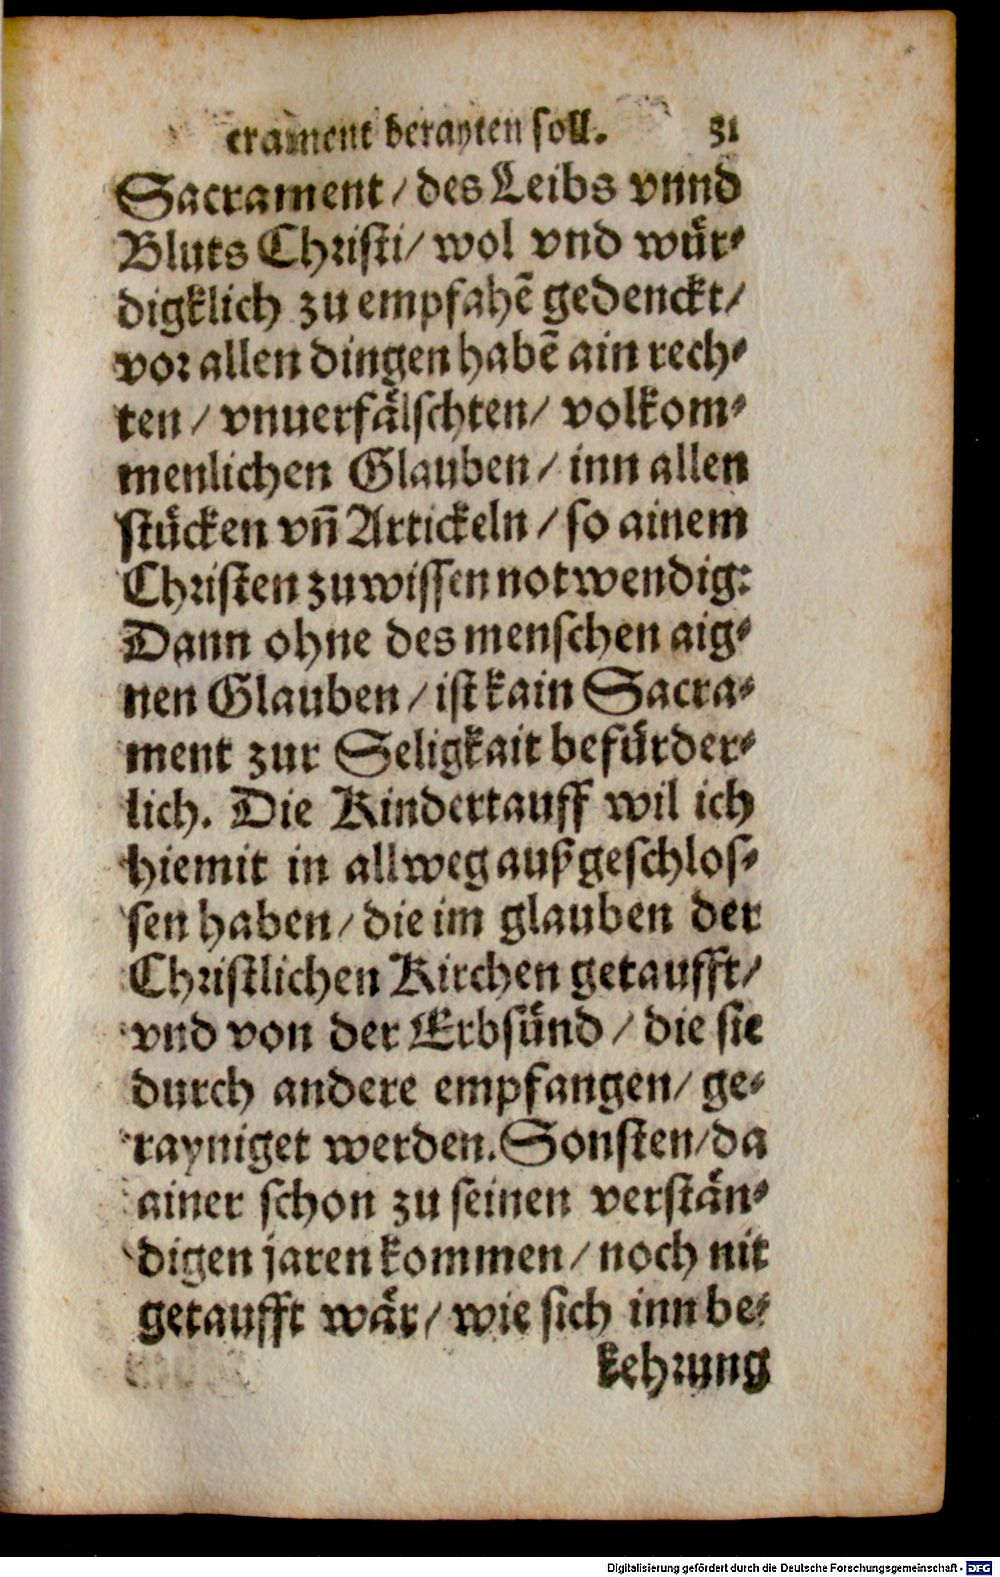 crament berayten soll. 31
Sacrament / des Leibs vnnd
Bluts Christi / wol vnd wür⸗
digklich zu empfahē gedenckt /
vor allen dingen habē ain rech⸗
ten / vnuerfälschten / volkom⸗
menlichen Glauben / inn allen
stücken vn̄ Artickeln / so ainem
Christen zu wissen notwendig:
Dann ohne des menschen aig⸗
nen Glauben / ist kain Sacra⸗
ment zur Seligkait befürder⸗
lich. Die Kindertauff wil ich
hiemit in allweg außgeschlos⸗
sen haben / die im glauben der
Christlichen Kirchen getaufft /
vnd von der Erbsünd / die sie
durch andere empfangen / ge⸗
rayniget werden. Sonsten / da
ainer schon zu seinen verstän⸗
digen jaren kommen / noch nit
getaufft wär / wie sich inn be⸗
kehrung
Digitalisierung gefördert durch die Deutsche Forschungsgemeinschaft - DFG